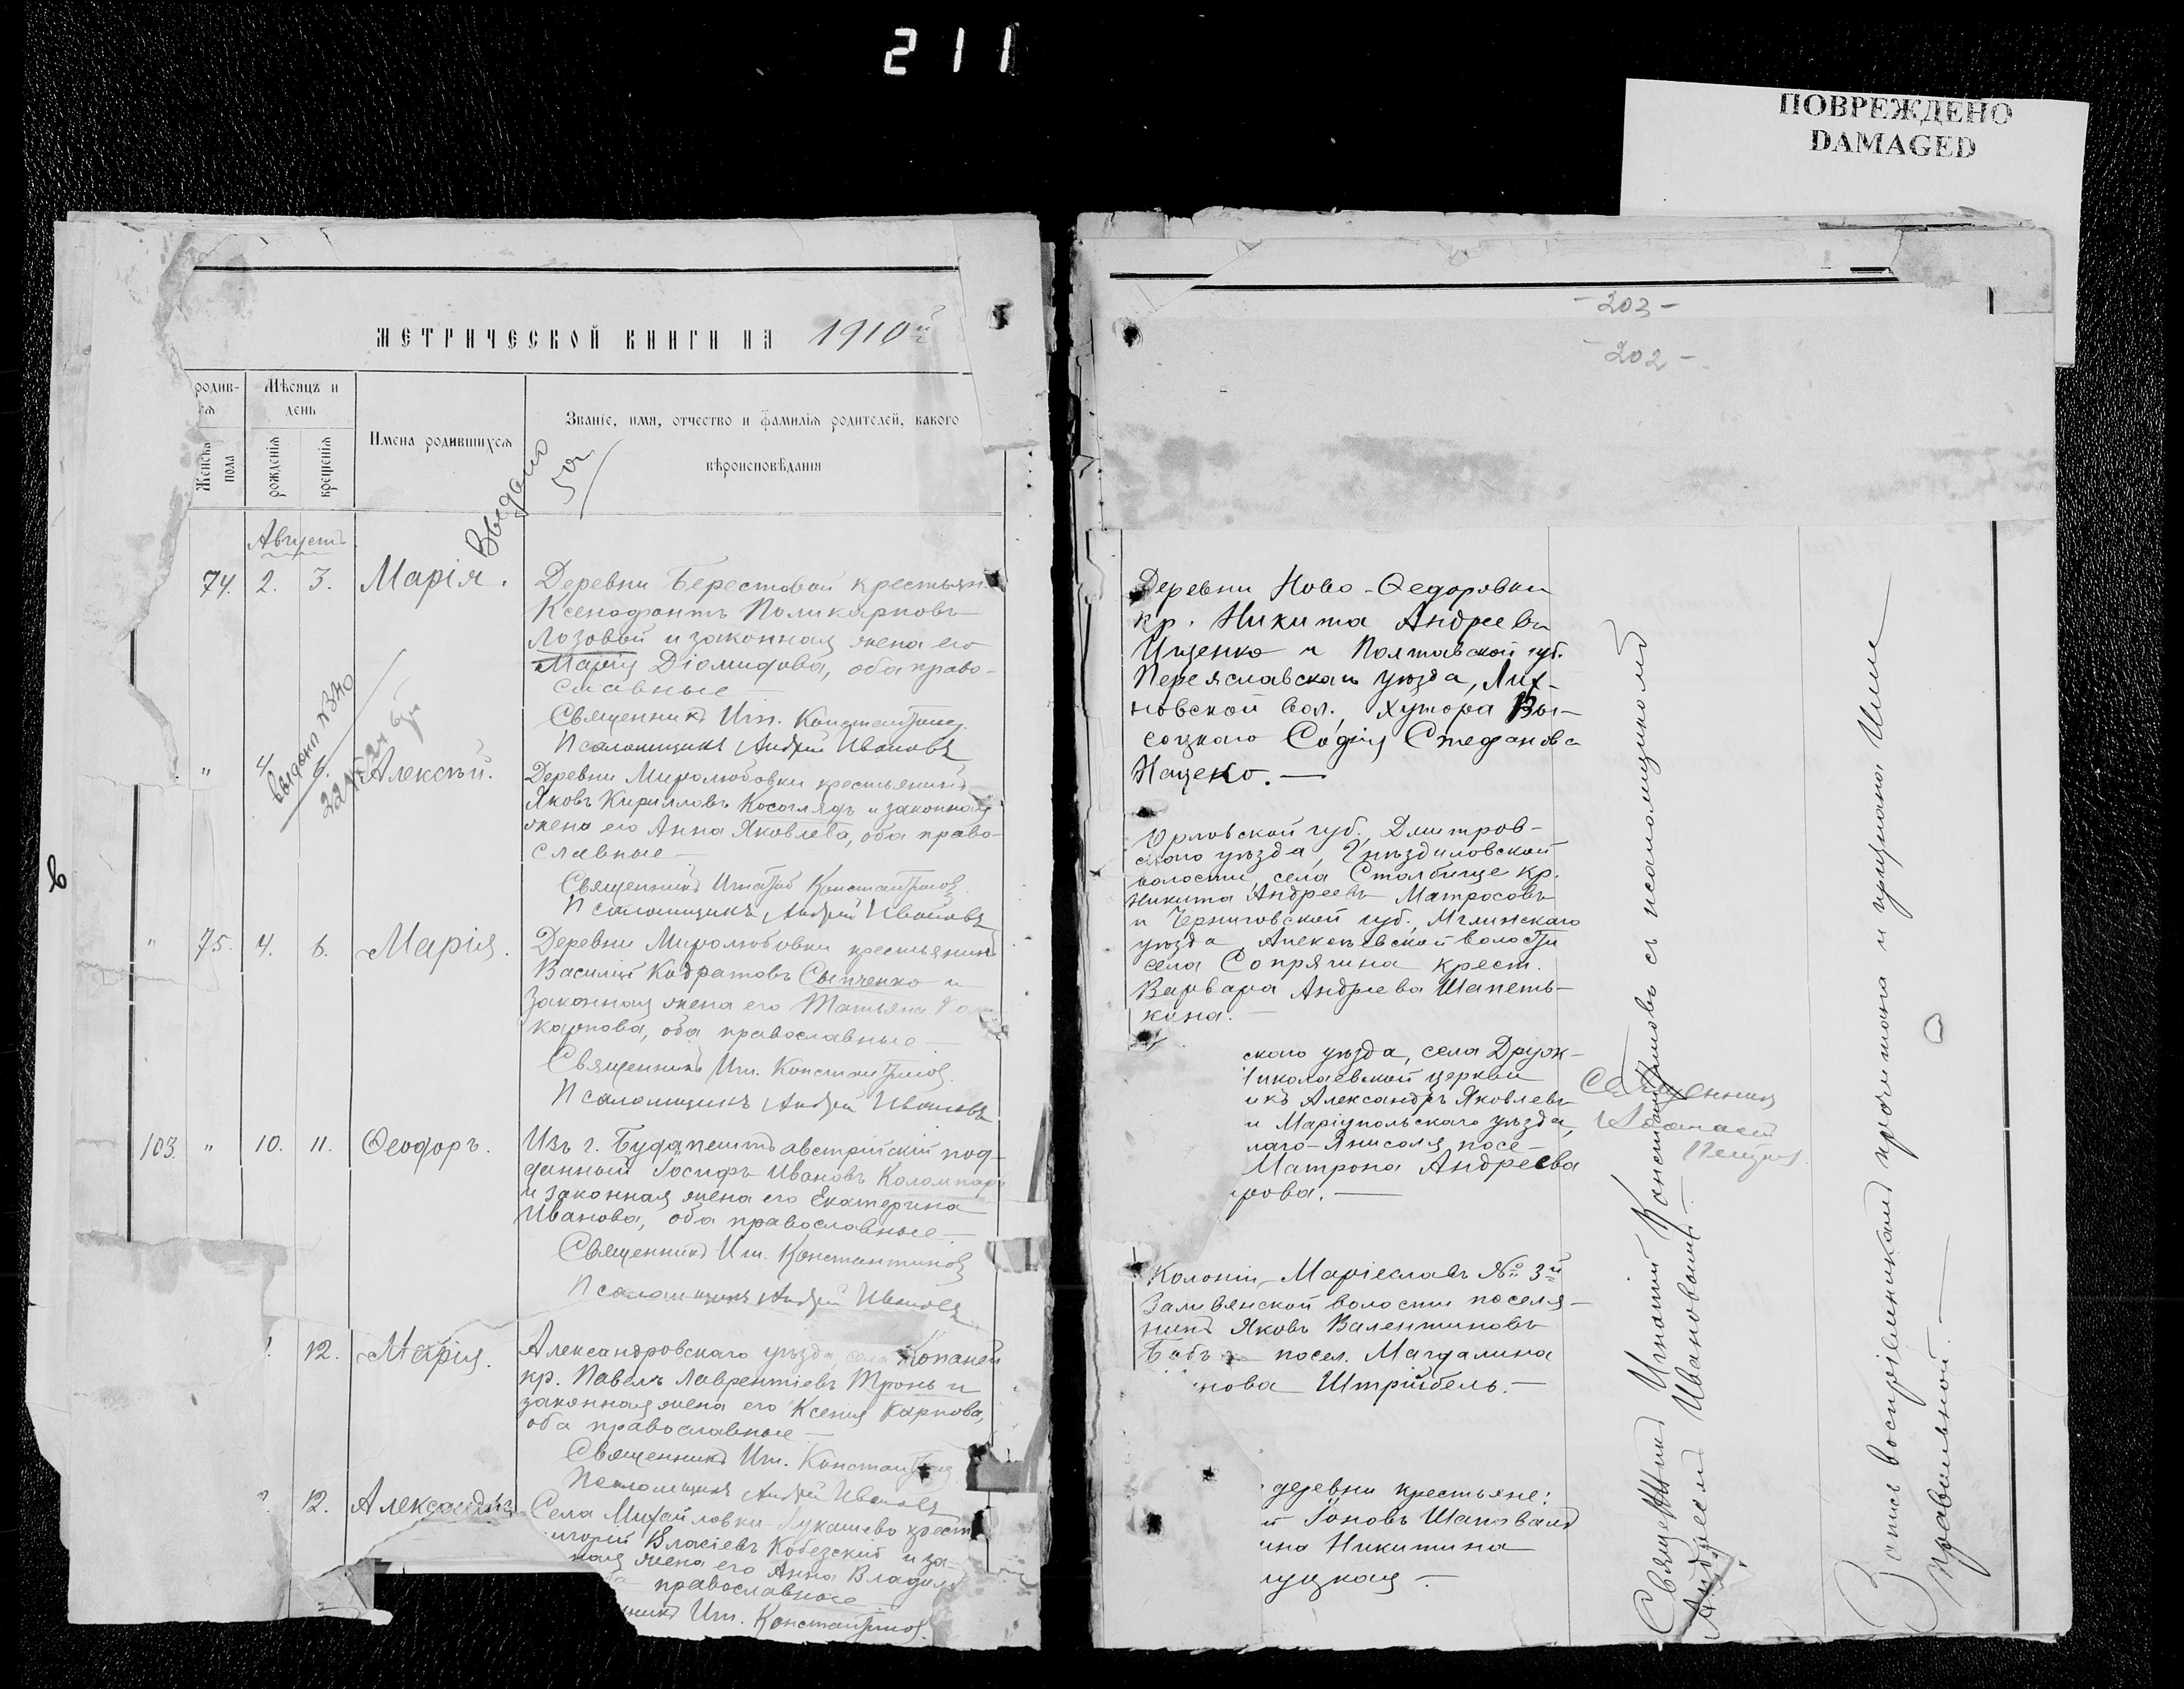 211
ПОВРЕЖДЕНО
DAMAGED
МЕТРИЧЕСКОЙ КНИГИ НА 1910й
родив-
ся
Женска
пола
Мѣсяцъ и
день
рожденія
крещенія
Имена родившихся
Званіе, имя, отчество и фамилія родителей, какого
вѣроисповѣданія
Августъ
74. 2. 3. Марія.
Деревни Берестовой крестьян.
Ксенофонтъ Поликарповъ
Лозовой и законная жена его
Марія Діомидова, оба право-
славные
Священникъ Игн. Константинов
Псаломщикъ Андрей Ивановъ
" 4. 6. Алексѣй.
Деревни Миролюбовки крестьянинъ
Яковъ Кирилловъ Косоглядъ и законная
жена его Анна Яковлева, оба право-
славные
Священникъ Игнатій Константинов
Псаломщикъ Андрей Ивановъ
" 75. 4. 6. Марія.
Деревни Миролюбовки крестьянинъ
Василій Кодратовъ Сыпченко и
законная жена его Татьяна
карпова, оба православные
Священникъ Игн. Константинов.
Псаломщикъ Андрей Ивановъ
103. " 10. 11. Ѳеодоръ.
Изъ г. Будапешта австрійскій под-
данный Іосифъ Ивановъ
и законная жена его Екатерина
Иванова, оба православные
Священникъ Игн. Константинов
Псаломщикъ Андрей Ивановъ
12. Марія.
Александровскаго уѣзда, села Копаней
кр. Павелъ Лаврентіевъ Тронь и
законная жена его Ксенія Карпова,
оба православные
Священникъ Игн. Константинов
Псаломщикъ Андрей Ивановъ
12. Александръ
Села Михайловки-Лукашево крест
Власіевъ Кобезскій и за-
ная жена его Анна
православные
Игн. Константинов.
- 203 -
- 202 -
Деревни Ново-Ѳедоровки
кр. Никита Андреевъ
Ищенко и Полтавской губ.
Переяславскаго уѣзда,
новской вол., хутора Вы-
соцкаго Софія Стефанова
Наценко.
Орловской губ., Дмитров-
скаго уѣзда, Гнѣздиловской
волости, села Столбище кр.
Никита Андреевъ Матросовъ
и Черниговской губ., Мглинскаго
уѣзда, Алексѣевской волости
села Сопрягина крест.
Варвара Андреева Шапеть-
кина.
скаго уѣзда, села Друж-
иколаевской церкви
икъ Александръ Яковлевъ
и Маріупольскаго уѣзда,
лаго-Янисоля посе-
Матрона Андреева
рова.
Колоніи Маріеславъ № 3й
Заливянской волости поселя-
нинъ Яковъ Валентиновъ
посел. Магдалина
нова Штрибель.
деревни крестьяне:
й Іоновъ Шаповалъ
ина Никитина
луцкая
Священникъ Игнатій Константиновъ съ псаломщикомъ
Андреемъ Ивановымъ
Священник
Запись воспріемникамъ прочитана и признана ими
правильной.